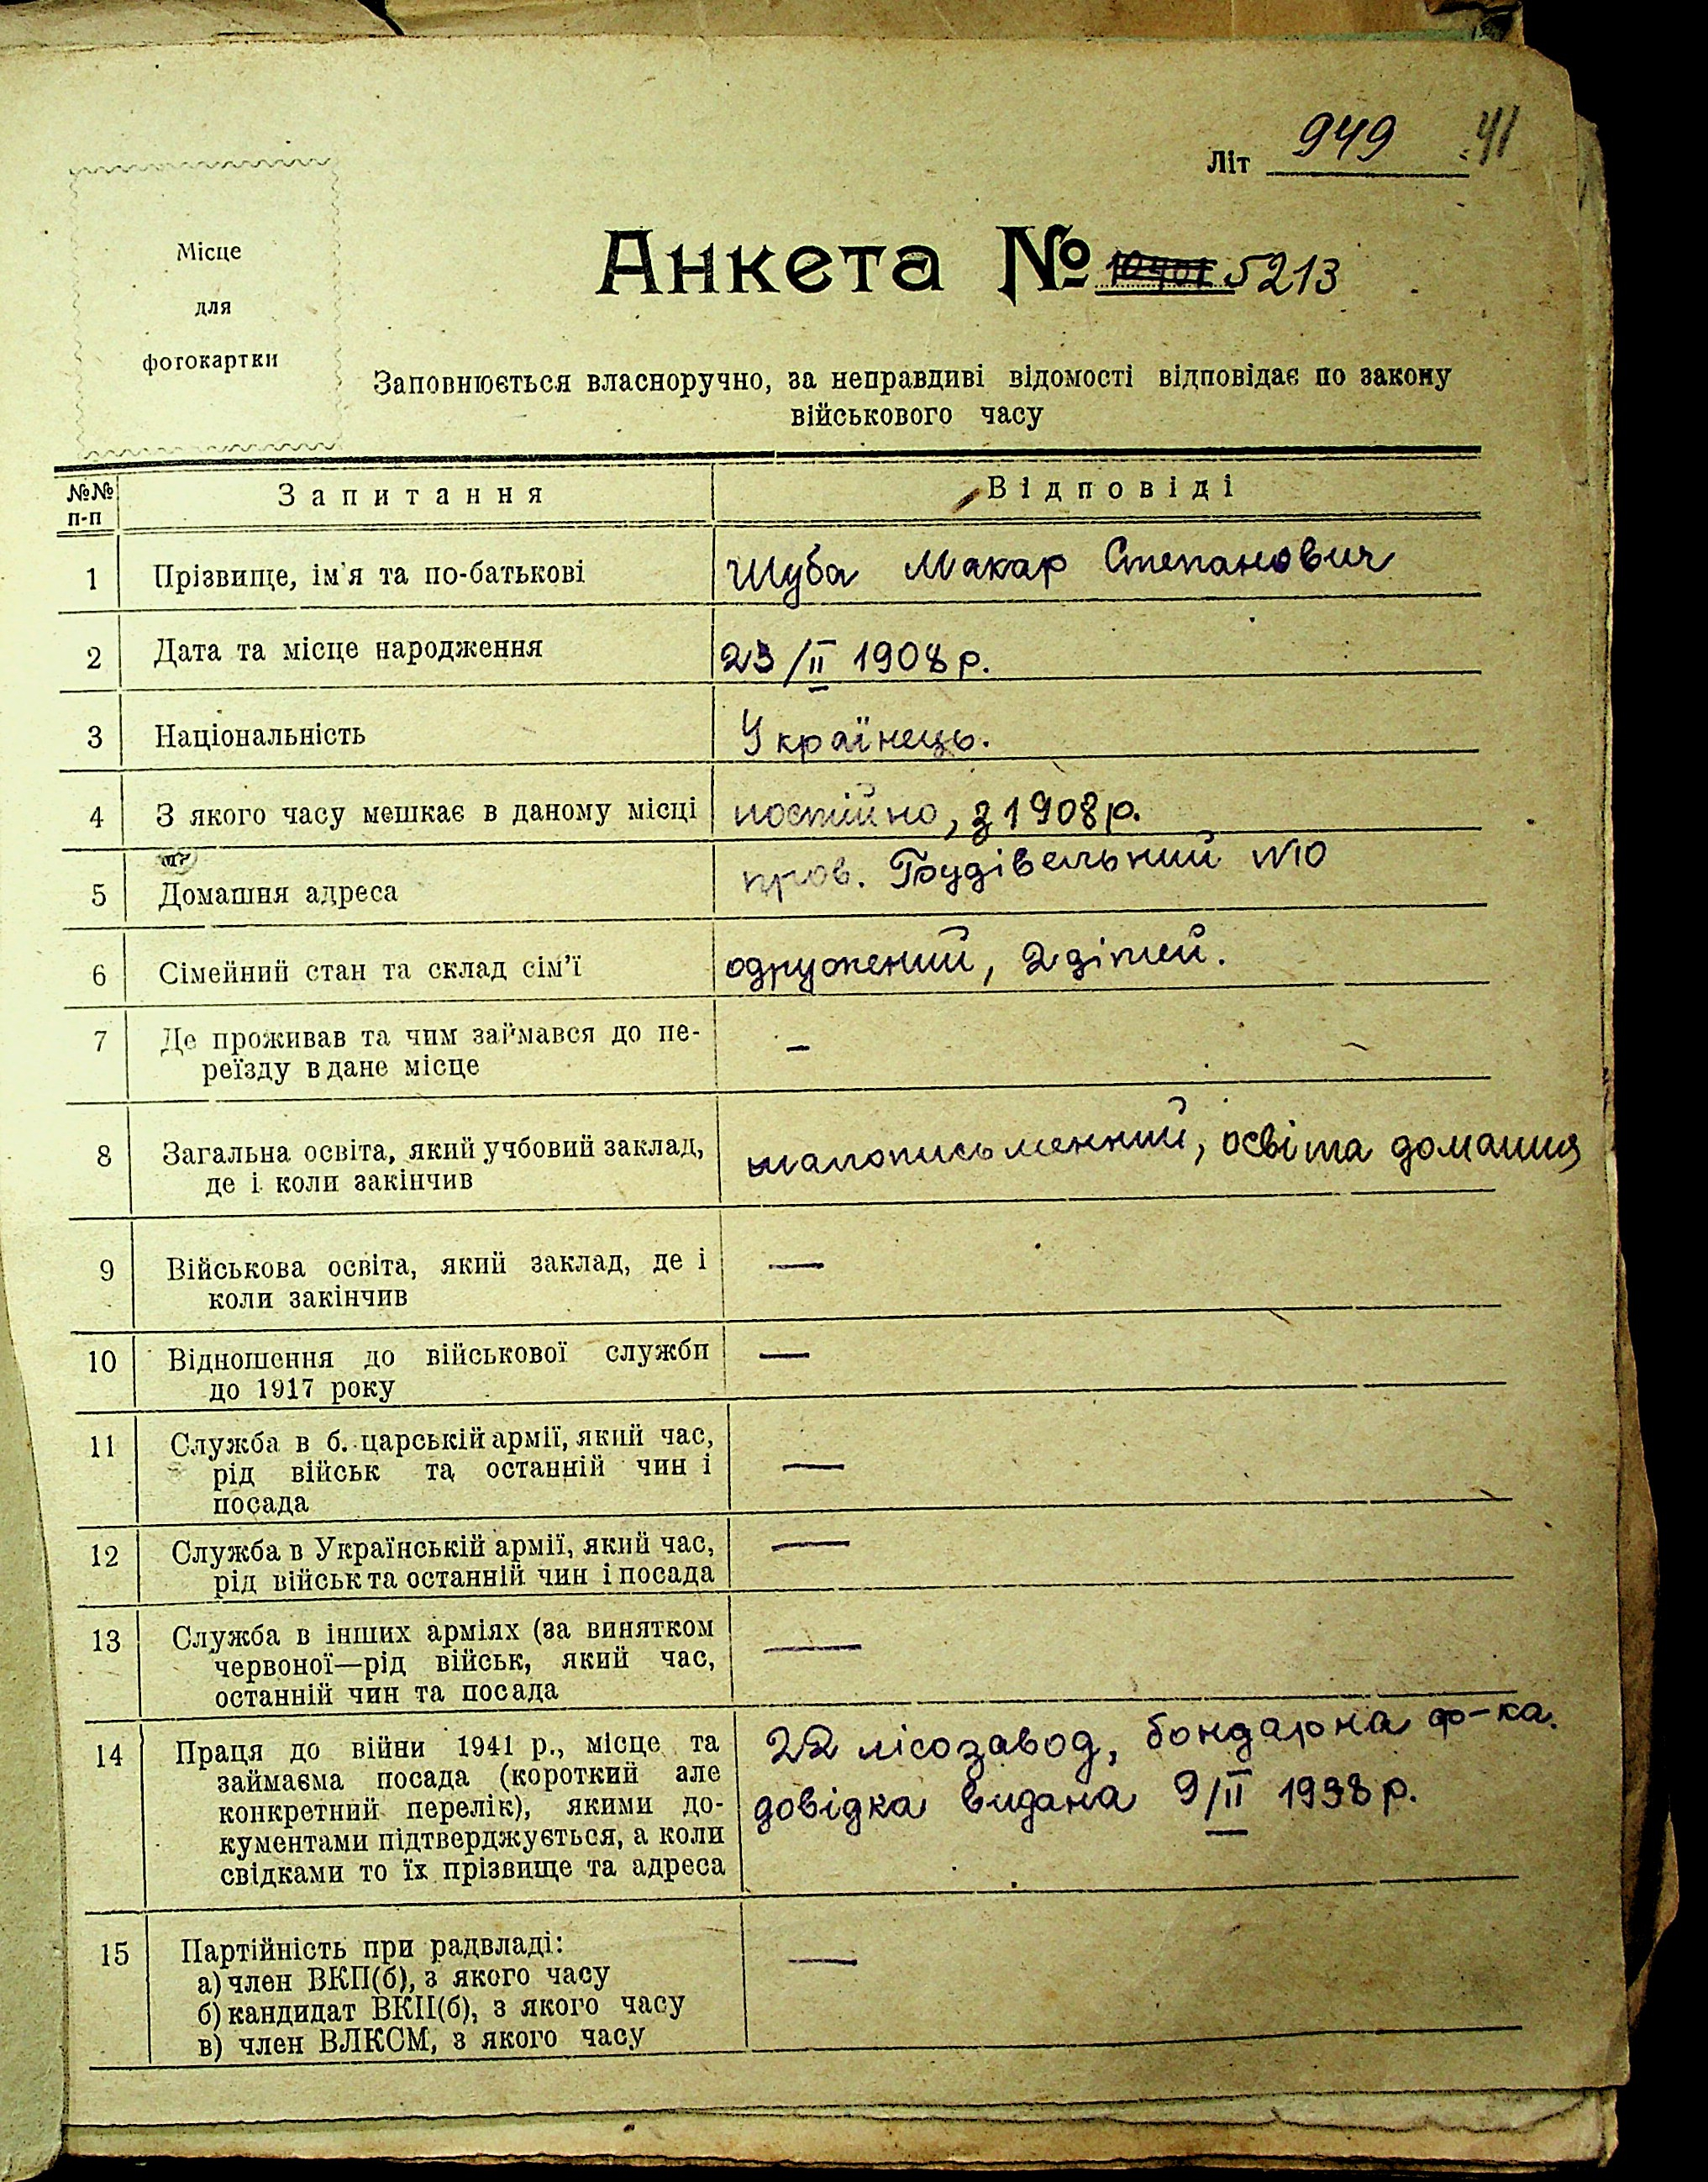 Літ 949 41
Місце
для
фотокартки
Анкета № 5213
Заповнюється власноручно, за неправдиві відомості відповідає по закону
військового часу
№№ п-п Запитання Відповіді
1 Прізвище, ім'я та по-батькові Шуба Макар Степанович
2 Дата та місце народження 23/II 1908 р.
3 Національність Українець.
4 З якого часу мешкає в даному місці постійно, з 1908 р.
5 Домашня адреса пров. Будівельний №10
6 Сімейний стан та склад сім'ї одружений, 2 дітей.
7 Де проживав та чим займався до пе-
реїзду в дане місце –
8 Загальна освіта, який учбовий заклад,
де і коли закінчив малописьменний, освіта домашня
9 Військова освіта, який заклад, де і
коли закінчив —
10 Відношення до військової служби
до 1917 року —
11 Служба в б. царській армії, який час,
рід військ та останній чин і
посада —
12 Служба в Українській армії, який час,
рід військ та останній чин і посада —
13 Служба в інших арміях (за винятком
червоної—рід військ, який час,
останній чин та посада —
14 Праця до війни 1941 р., місце та
займаєма посада (короткий але
конкретний перелік), якими до-
кументами підтверджується, а коли
свідками то їх прізвище та адреса
22 лісозавод, бондарна ф-ка.
довідка видана 9/II 1938 р.
15 Партійність при радвладі: —
а) член ВКП(б), з якого часу
б) кандидат ВКП(б), з якого часу
в) член ВЛКСМ, з якого часу